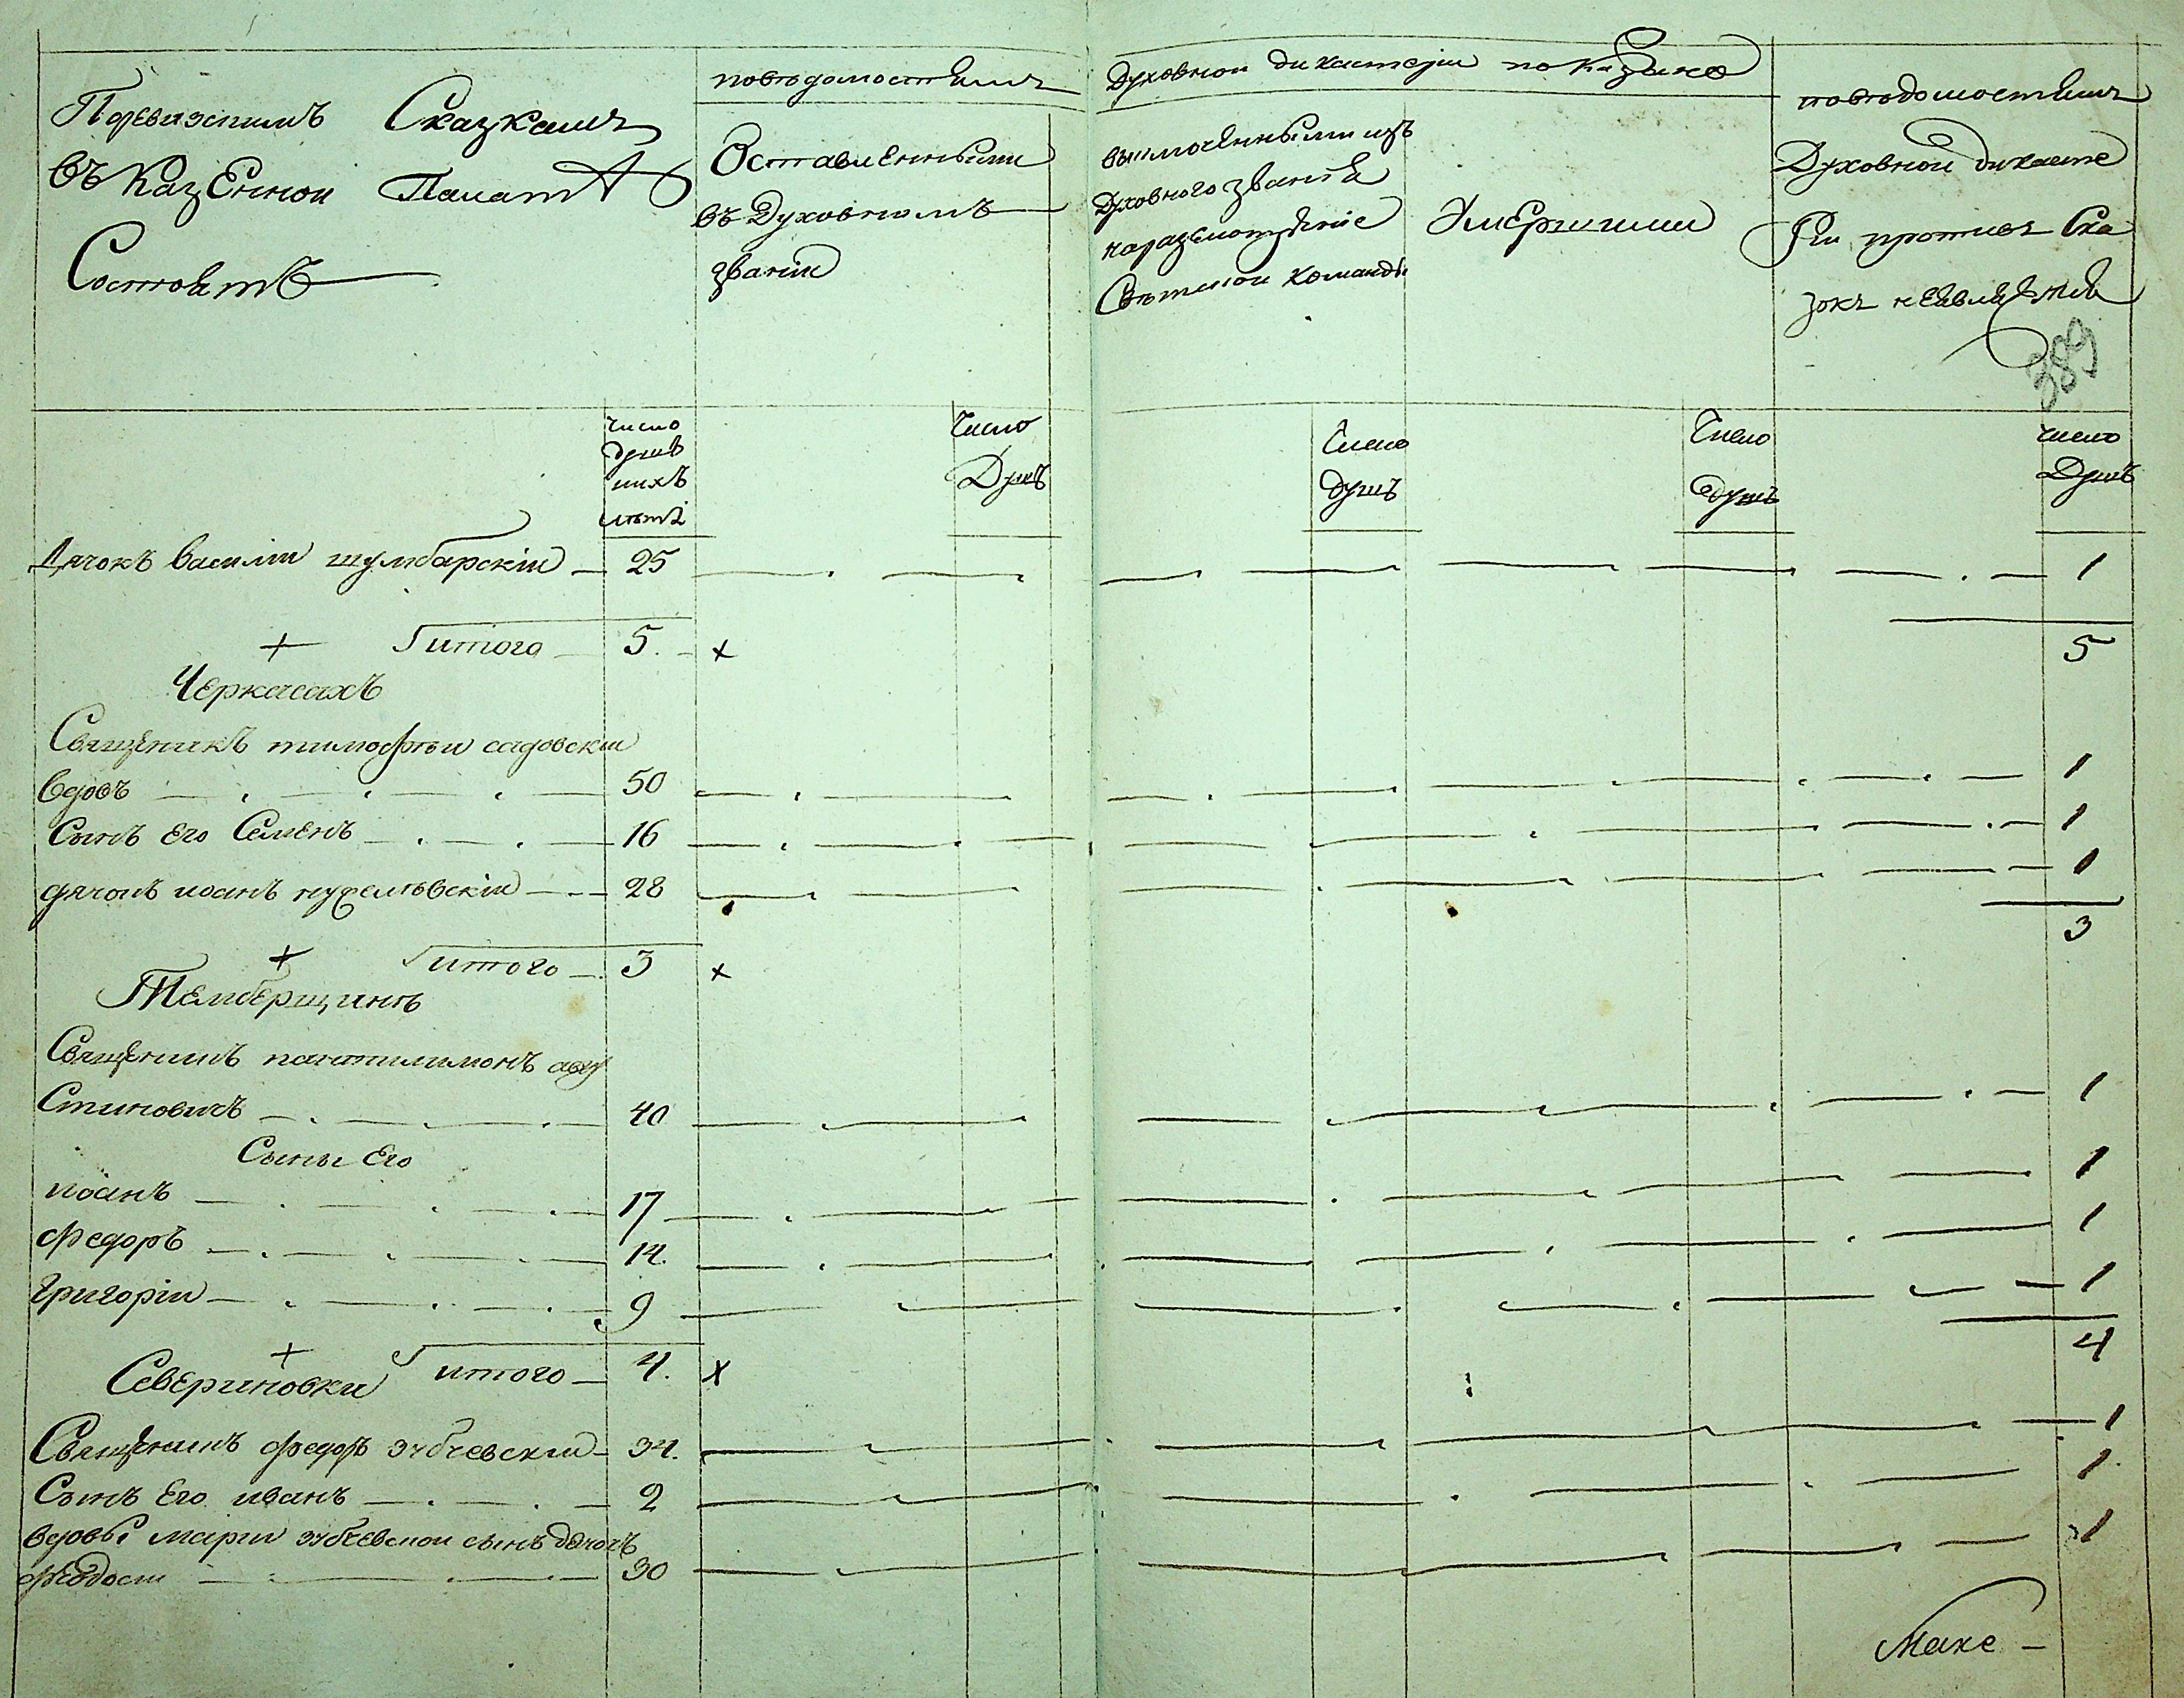 Поревизскимъ Сказкамъ
въ Казенной Палатѣ
Состоитъ
повѣдомостямъ Духовной дикастеріи показано
Оставленными
въ Духовномъ
званіи
выключенными изъ
Духовного званія
наразсмотреніе
Свѣтской команды
Умершими
повѣдомостямъ
Духовной дикасте
ріи противъ Ска
зокъ неявляется
389
число
душъ
ихъ
лѣта
Число
Душъ
Число
душъ
Число
душъ
число
Душъ
Дячокъ Василій шумбарскій — 25 1
+ итого 5. х 5
Черкасахъ
Священикъ тимофѣй садовскій
вдовъ 50 1
Сынъ Его Семенъ 16 1
дячокъ иоанъ 28 1
3
+ итого 3 х
Темберщинѣ
Священикъ пантилимонъ авгу
Стиновичъ 40 1
Сыны Его
иоанъ 17 1
Федоръ 14. 1
Григорій 9 1
4
+ итого 4. х
Севериновки
Священикъ Федоръ зубчевскій 34. 1
Сынъ Его иванъ 2 1
вдовы маріи зубчевской сынъ дячокъ
Феодосій 30 1
Маке —